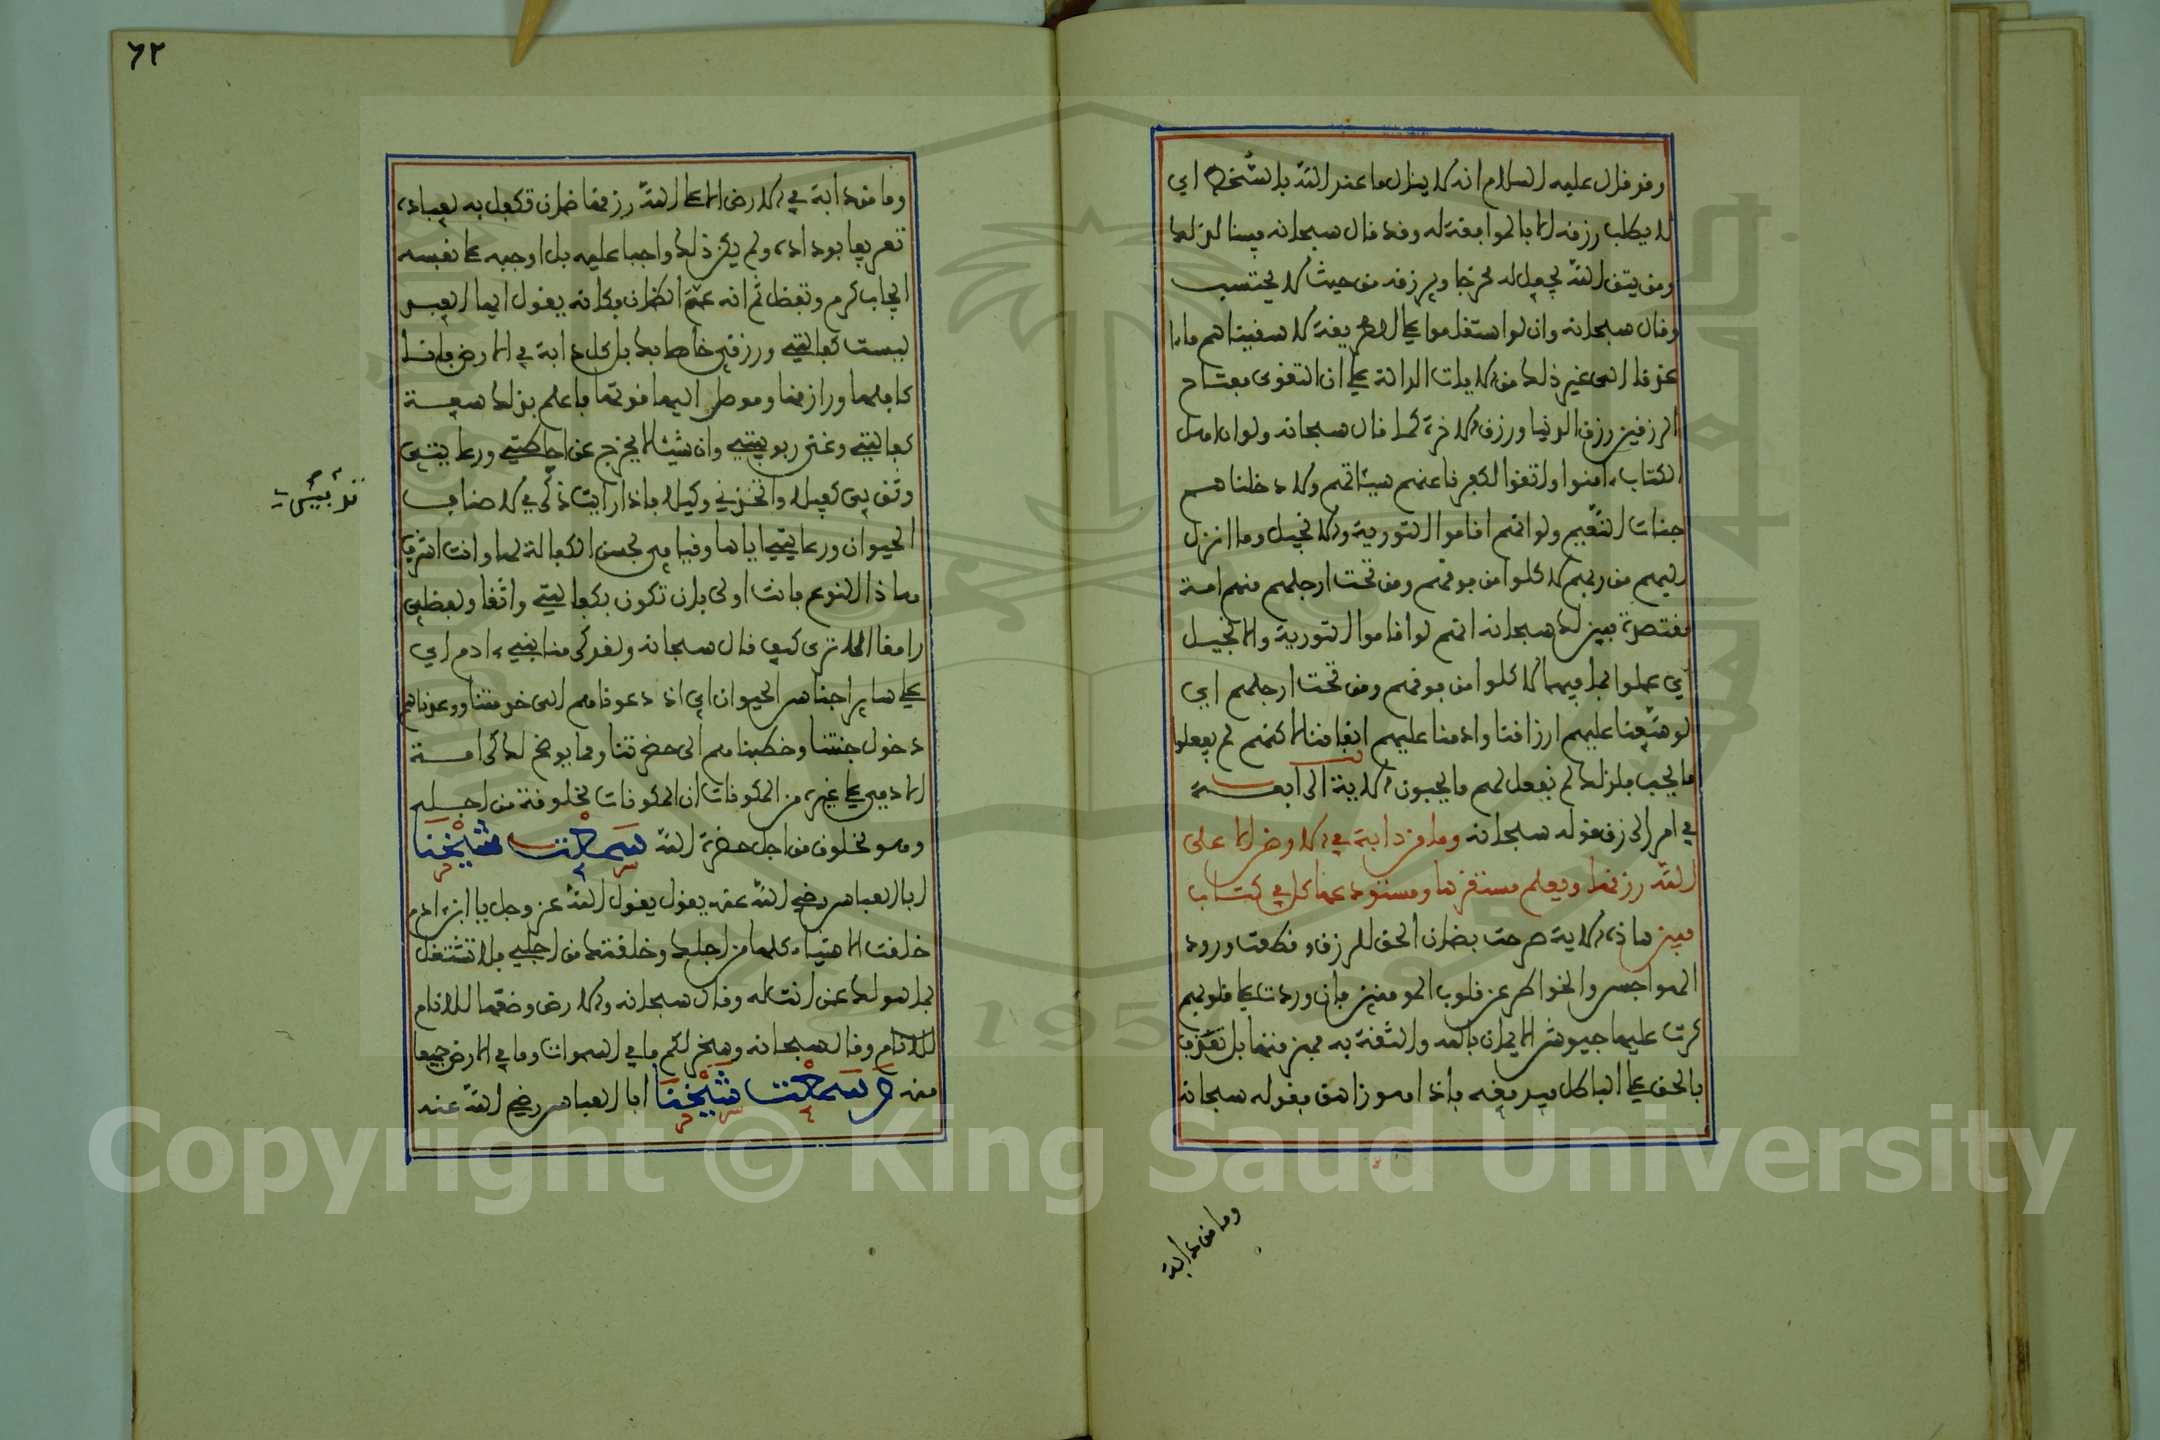 وقد قال عليه السلام انه لا ينال ما عند الله بالسخط اي
لا يطلب رزقه الا بالموافقة له وقد قال سبحانه مبينا لذلك
ومن يتق الله يجعل له مخرجا ويرزقه من حيث لا يحتسب
وقال سبحانه وان لو استقاموا على الطريقة لاسقيناهم ماء
غدقا الى غير ذلك من الايات الدالة على ان التقوى مفتاح
الرزقين رزق الدنيا ورزق الاخرة كما قال سبحانه ولو ان اهل
الكتاب ءامنوا واتقوا لكفرنا عنهم سيئاتهم ولادخلناهم
جنات النعيم ولو انهم اقاموا التورية والانجيل وما انزل
اليهم من ربهم لاكلوا من فوقهم ومن تحت ارجلهم منهم امة
مقتصدة فبين لك سبحانه انهم لو اقاموا التورية والانجيل
اي عملوا بما فيهما لاكلوا من فوقهم ومن تحت ارجلهم اي
لوسعنا عليهم ارزاقنا وادمنا عليهم انفاقنا لاكنهم لم يفعلوا
ما يجب فلذلك لم نفعل لهم ما يحبون الاية الرابعة
في امر الرزق قوله سبحانه وما من دابة في الارض الا على
الله رزقها ويعلم مستقرها ومستودعها كل في كتاب
مبين هاذه الاية صرحت بضمان الحق الرزق وقطعت ورود
الهواجس والخواطر عن قلوب المومنين فان وردت على قلوبهم
كرت عليها جيوش الايمان بالله والثقة به فهزمتها بل نقذف
بالحق على الباطل فيدمغه فاذا هو زاهق فقوله سبحانه
وما من دابة
٦٢
وما من دابة في الارض الا على الله رزقها ضمان تكفل به لعباده
تعريفا بوداده ولم يكن ذلك واجبا عليه بل اوجبه على نفسه
ايجاب كرم وتفضل ثم انه عمم الضمان فكانه يقول ايها العبد
ليست كفالتي ورزقي خاصا بك بل كل دابة في الارض فانا
كافلها ورازقها وموصل اليها قوتها فاعلم بذلك سعة
كفالتي وغنى ربوبيتي وان شيئا لا يخرج عن احاطتي ورعايتي
وثق بي كفيلا واتخذني وكيلا فاذا رايت ذكري لاصناف
الحيوان ورعايتي اياها وقيامي بحسن الكفالة لها وانت اشرف
هاذا النوع فانت اولى بان تكون بكفالتي واثقا ولفضلي
رامقا الا ترى كيف قال سبحانه ولقد كرمنا بني ءادم اي
على ساير اجناس الحيوان اي اذ دعوناهم الى خدمتنا ووعدناهم
دخول جنتنا وخطبناهم الى حضرتنا ومما يوضح لك كرامة
الادمي على غيره من المكونات ان المكونات مخلوقة من اجله
وهو مخلوق من اجل حضرة الله سمعت شيخنا
ابا العباس رضي الله عنه يقول يقول الله عز وجل يا ابن ءادم
خلقت الاشياء كلها من اجلك وخلقتك من اجلي فلا تشتغل
بما هو لك عن انت له وقال سبحانه والارض وضعها للانام
للانام وقال سبحانه وسخر لكم ما في السموات وما في الارض جميعا
منه وسمعت شيخنا ابا العباس رضي الله عنه